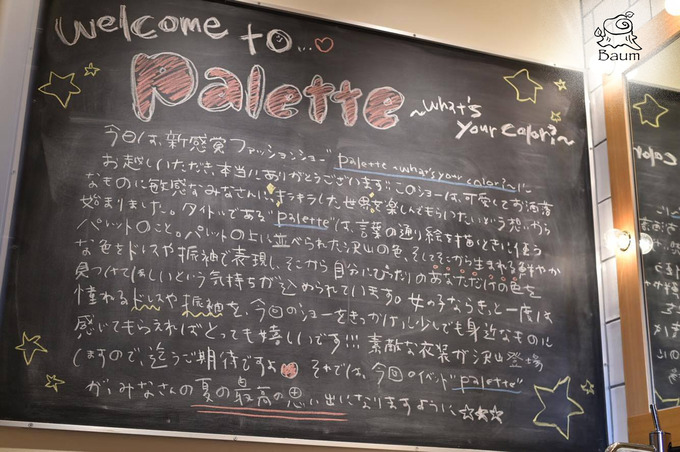 welcome to...
Palette
~what's
your color?~
今日は、新感覚ファッションショー"Palette ~what's your color?~"に
お越しいただき、本当にありがとうございます!! このショーは、可愛くてお洒落
なものに敏感なみなさんに、キラキラした世界を楽しんでもらいたいという想いから
始まりました。タイトルである"Palette"は、言葉の通り絵を描くときに使う
パレットのこと。パレットの上に並べられた沢山の色、そしてそこから生まれる鮮やか
な色をドレスや振袖で表現し、そこから自分にぴったりのあなただけの色を
見つけてほしいという気持ちが込められています。女の子ならきっと一度は
憧れるドレスや振袖を、今回のショーをきっかけに少しでも身近なものに
感じてもらえればとっても嬉しいです!!! 素敵な衣装が沢山登場
しますので、乞うご期待ですよ それでは、今回のイベント"palette"
が、みなさんの夏の最高の思い出になりますように☆☆☆
Baum